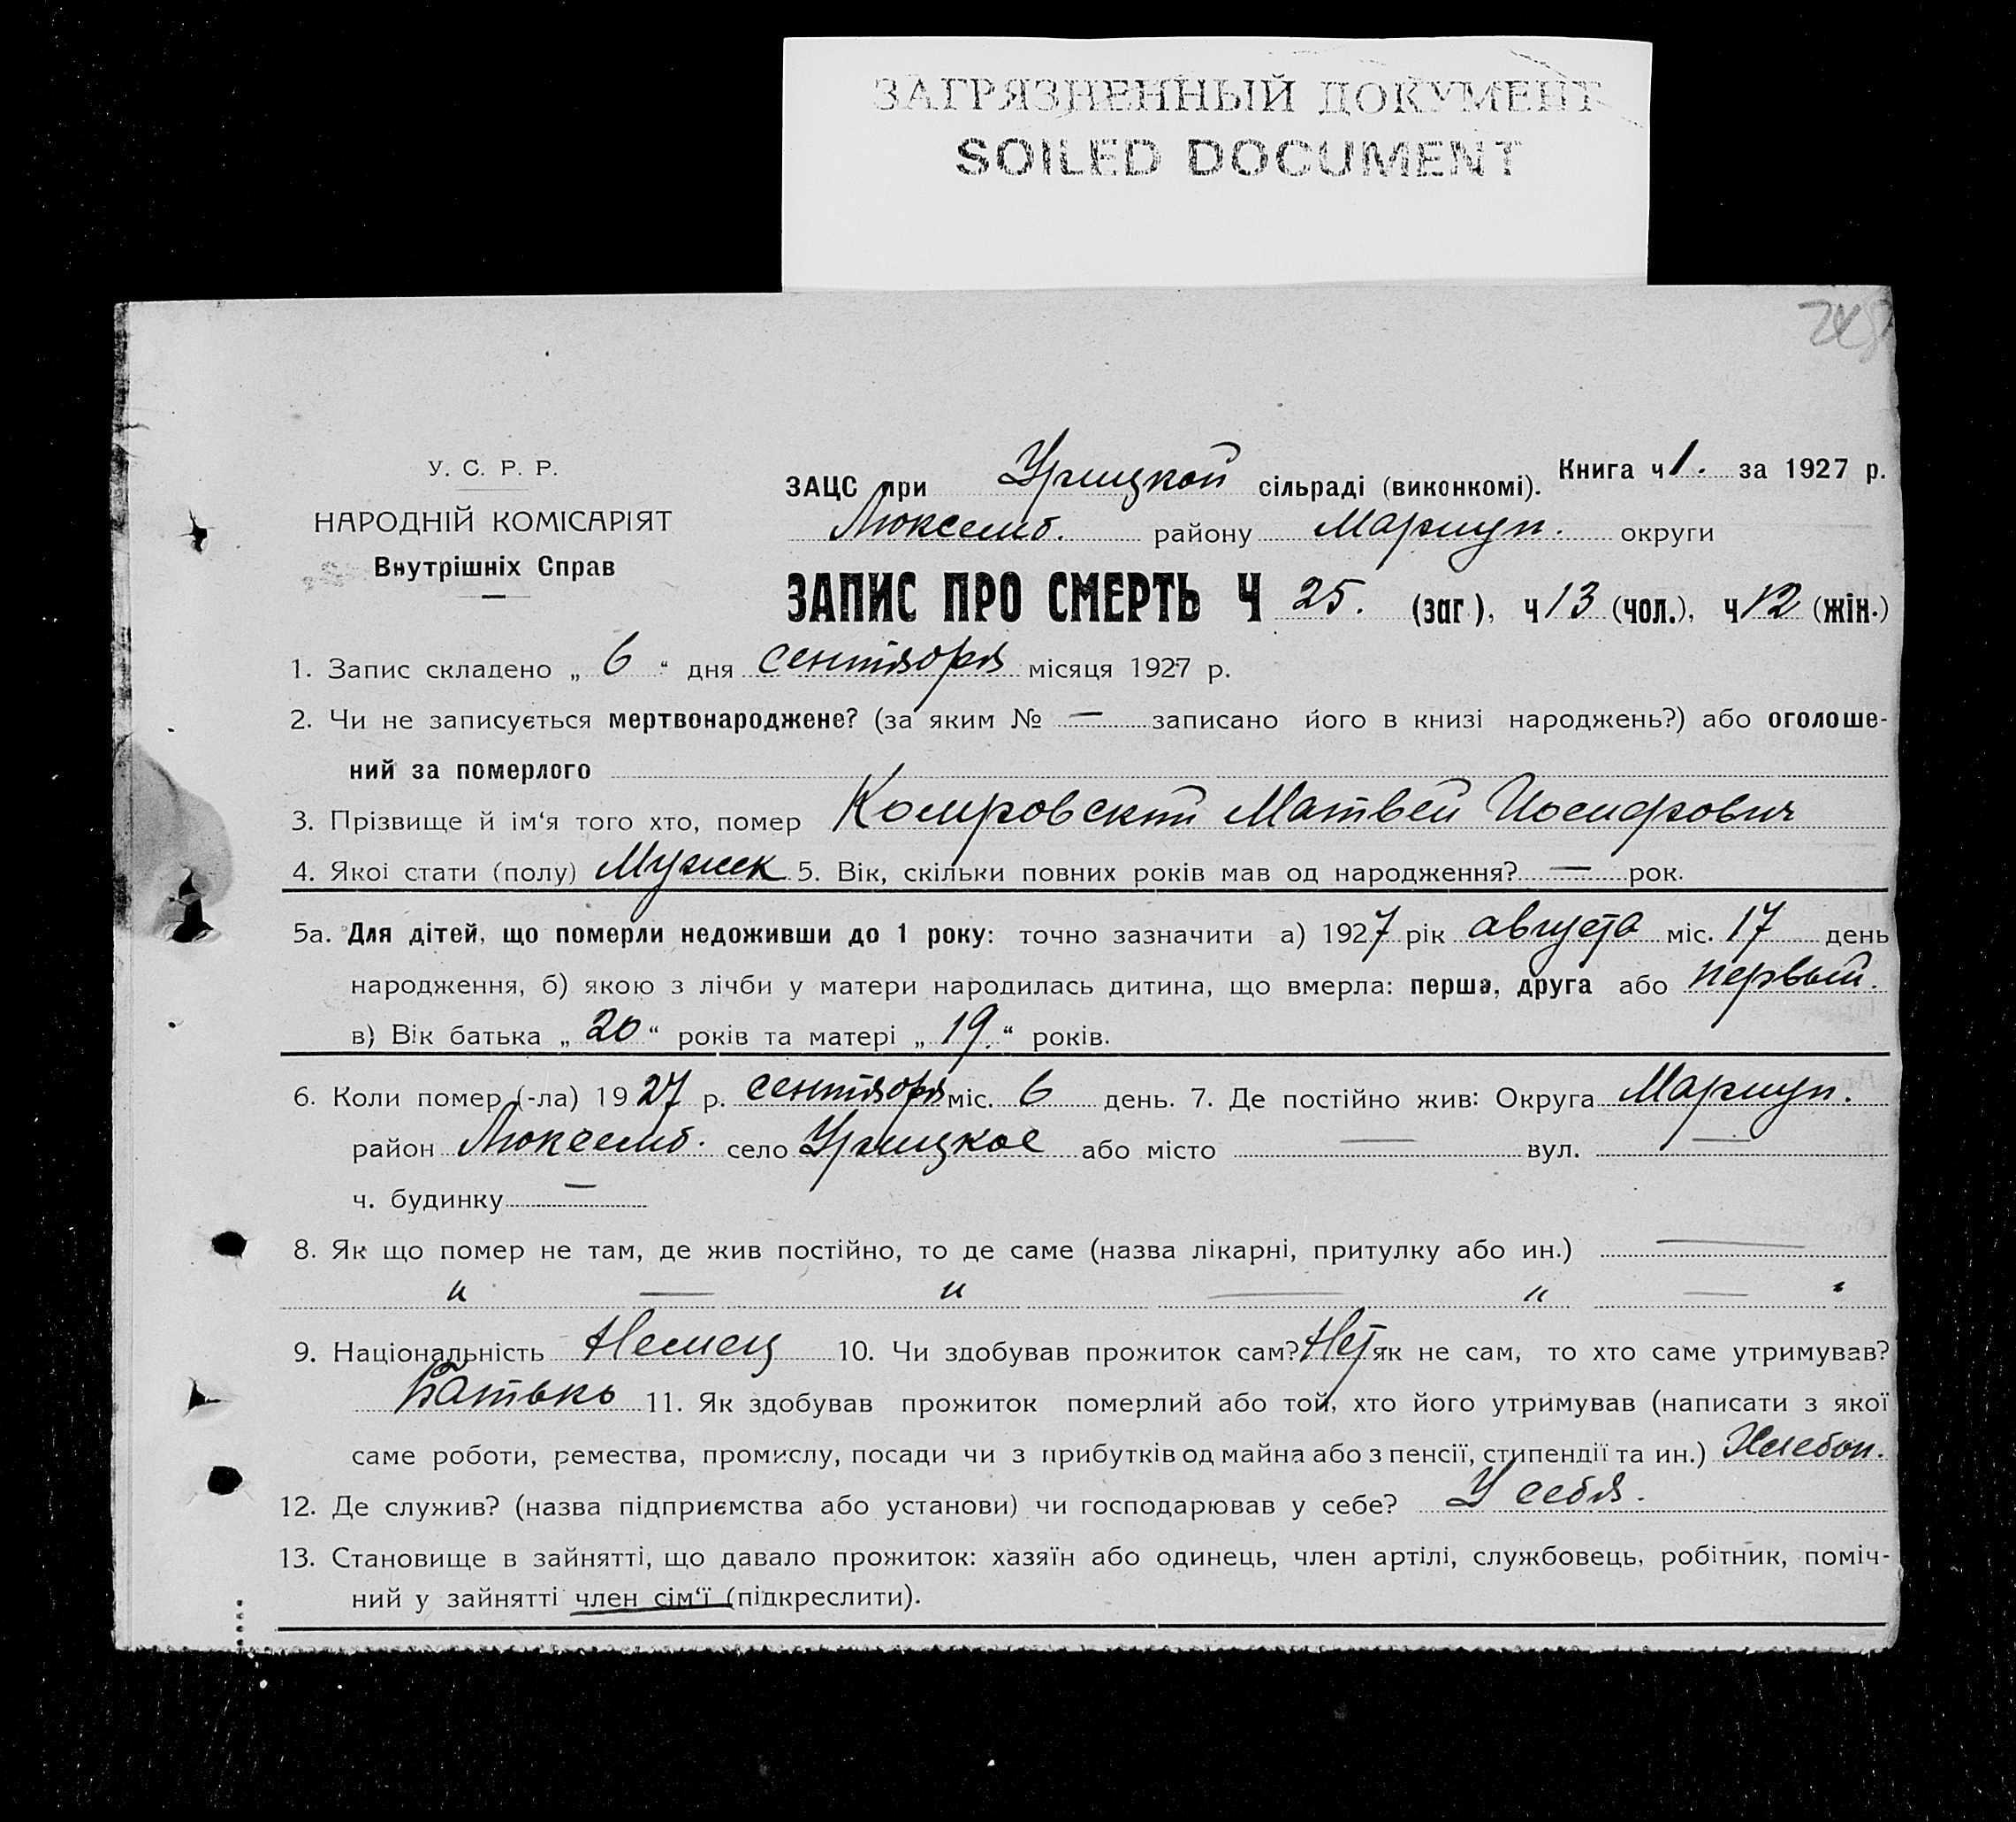 ЗАГРЯЗНЕННЫЙ ДОКУМЕНТ
SOILED DOCUMENT
У. С. Р. Р.
НАРОДНІЙ КОМІСАРІЯТ
Внутрішніх Справ
Книга ч 1. за 1927 р.
ЗАЦС при Урицкой сільраді (виконкомі).
Люксемб. району Мариуп. округи
ЗАПИС ПРО СМЕРТЬ Ч 25. (заг.), ч 13 (чол.), ч 12 (жін.)
1. Запис складено „ 6 “ дня сентября місяця 1927 р.
2. Чи не записується мертвонароджене? (за яким № — записано його в книзі народжень?) або оголоше-
ний за померлого
3. Прізвище й ім‘я того хто, помер Матвей Иосифович
4. Якої стати (полу) Мужск 5. Вік, скільки повних років мав од народження? — рок.
5а. Для дітей, що померли недоживши до 1 року: точно зазначити а) 1927 рік августа міс. 17 день
народження, б) якою з лічби у матери народилась дитина, що вмерла: перша, друга або первый.
в) Вік батька „ 20 “ років та матері „ 19. “ років.
6. Коли помер (-ла) 1927 р. сентября міс. 6 день. 7. Де постійно жив: Округа Мариуп.
район Люксемб. село Урицкое або місто — вул. —
ч. будинку —
8. Як що помер не там, де жив постійно, то де саме (назва лікарні, притулку або ин.) —
„ — „ — „ — „
9. Національність Немец 10. Чи здобував прожиток сам? Нет як не сам, то хто саме утримував?
Батько 11. Як здобував прожиток померлий або той, хто його утримував (написати з якої
саме роботи, ремества, промислу, посади чи з прибутків од майна або з пенсії, стипендії та ин.) Хлебоп.
12. Де служив? (назва підприємства або установи) чи господарював у себе? У себя.
13. Становище в зайнятті, що давало прожиток: хазяїн або одинець, член артілі, службовець, робітник, поміч-
ний у зайнятті член сім‘ї (підкреслити).